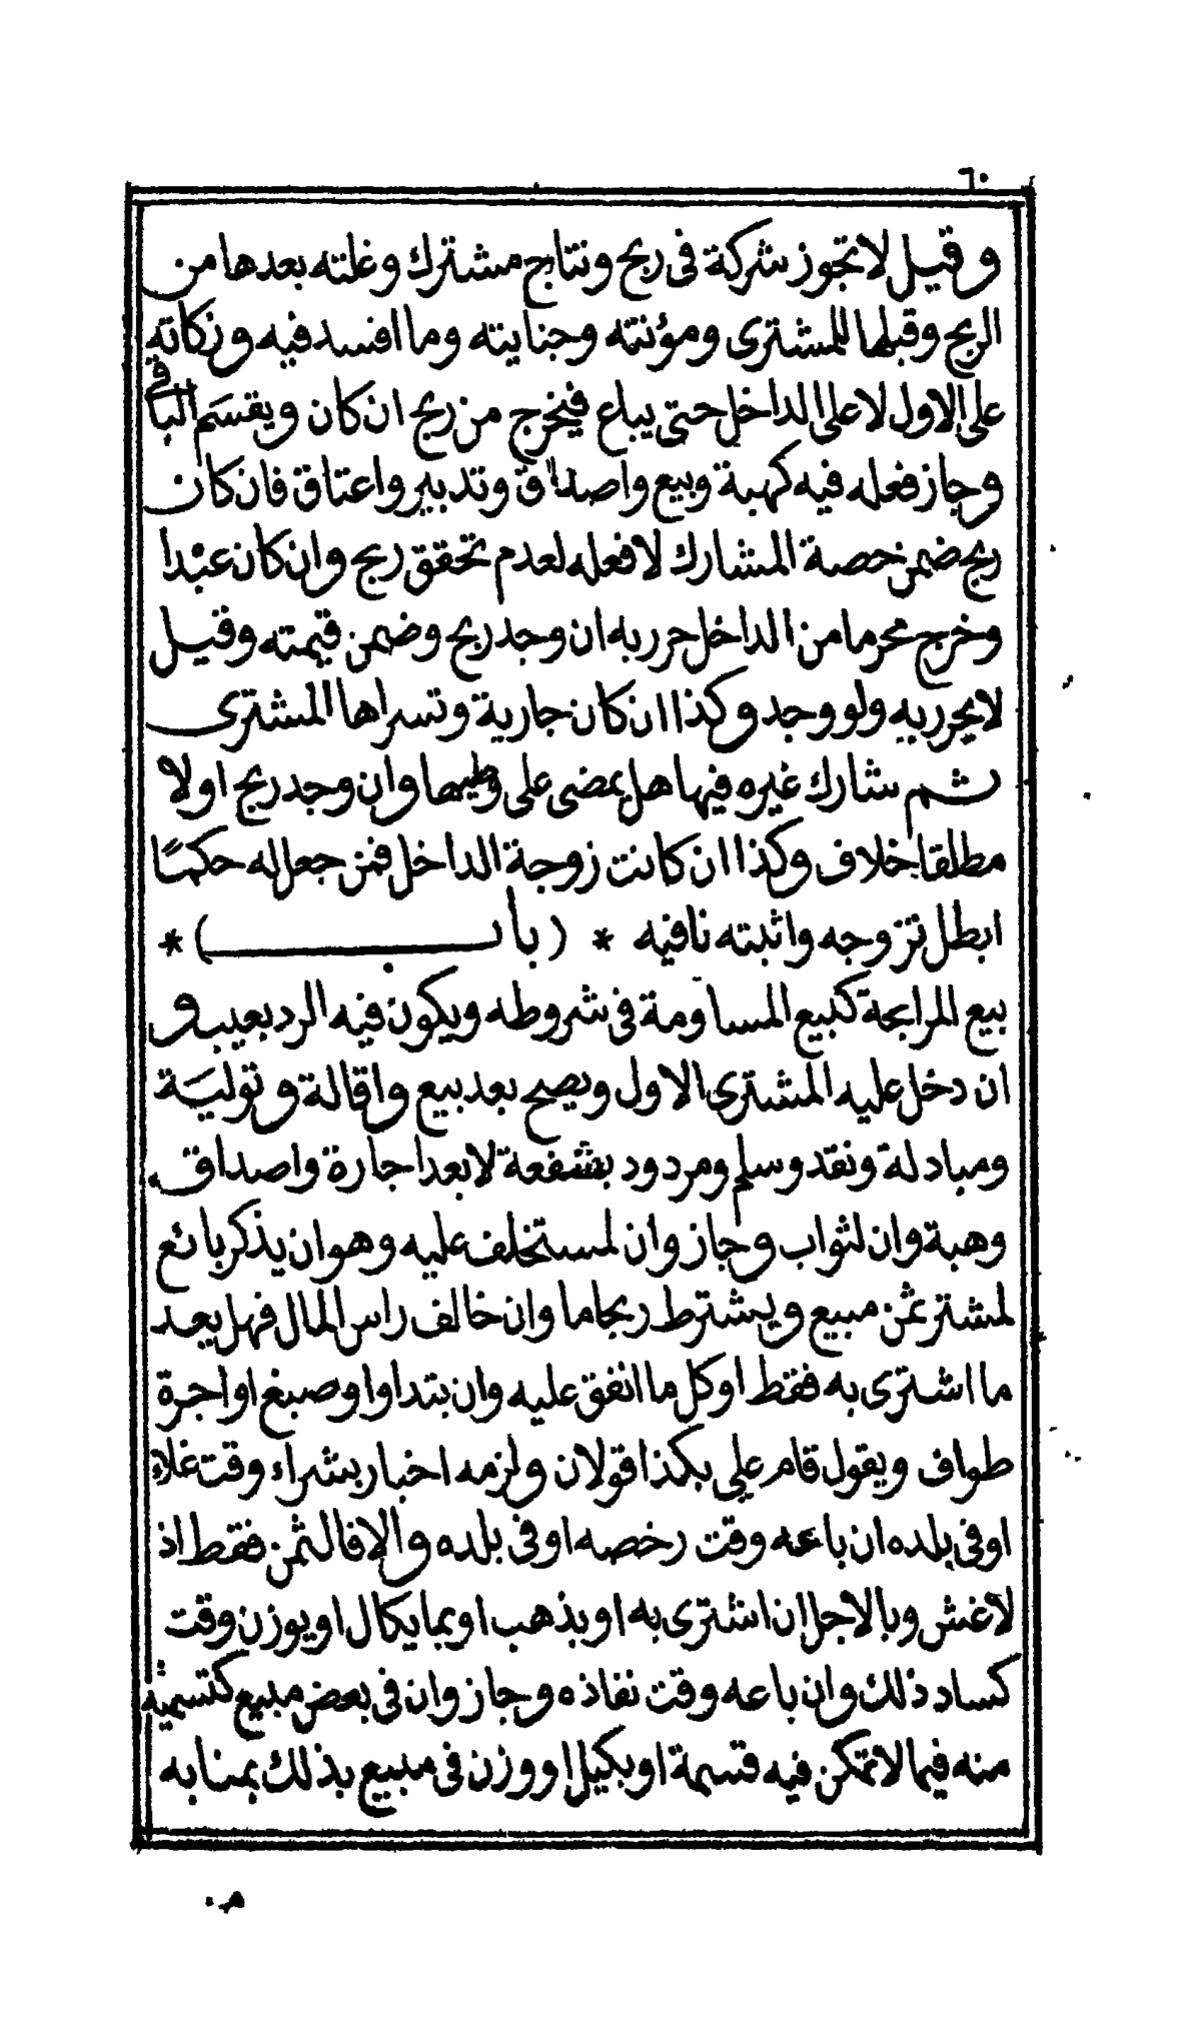 ٦٠
وقيل لا تجوز شركة فى ربح ونتاج مشترك وغلته بعدها من
الربح وقبلها للمشترى ومؤنته وجنايته وما افسد فيه وزكاته
على الاول لا على الداخل حتى يباع فيخرج من ربح ان كان ويقسم الباقى
وجاز فعله فيه كهبة وبيع واصداق وتدبير واعتاق فان كان
ربح ضمن حصة المشارك لا فعله لعدم تحقق ربح وان كان عبدا
وخرج محرما من الداخل حرر به ان وجد ربح وضمن قيمته وقيل
لا يحرر به ولو وجد وكذا ان كان جارية وتسراها المشترى
ثم شارك غيره فيها هل يمضى على وطيها وان وجد ربح اولا
مطلقا خلاف وكذا ان كانت زوجة الداخل فمن جعل له حكمًا
ابطل تزوجه واثبته نافيه * (باب) *
بيع المرابحة كبيع المساومة فى شروطه ويكون فيه الرد بعيب و
ان دخل عليه المشترى الاول ويصح بعد بيع واقالة وتولية
ومبادلة ونقد وسلم ومردود بشفعة لا بعد اجارة واصداق
وهبة وان لثواب وجاز وان لمستخلف عليه وهو ان يذكر بائع
لمشتر ثمن مبيع ويشترط ربحا ما وان خالف راس المال فهل يعد
ما اشترى به فقط او كل ما انفق عليه وان بتداوا وصبغ او اجرة
طواف ويقول قام على بكذا قولان ولزمه اخبار بشراء وقت غلاء
او فى بلده ان باعه وقت رخصه او فى بلده والا فالثمن فقط اذ
لا غش وبالاجل ان اشترى به او بذهب او بما يكال او يوزن وقت
كساد ذلك وان باعه وقت نفاذه وجاز وان فى بعض مبيع كتسمية
منه فيما لا تمكن فيه قسمة او بكيل او وزن فى مبيع بذلك بمنابه